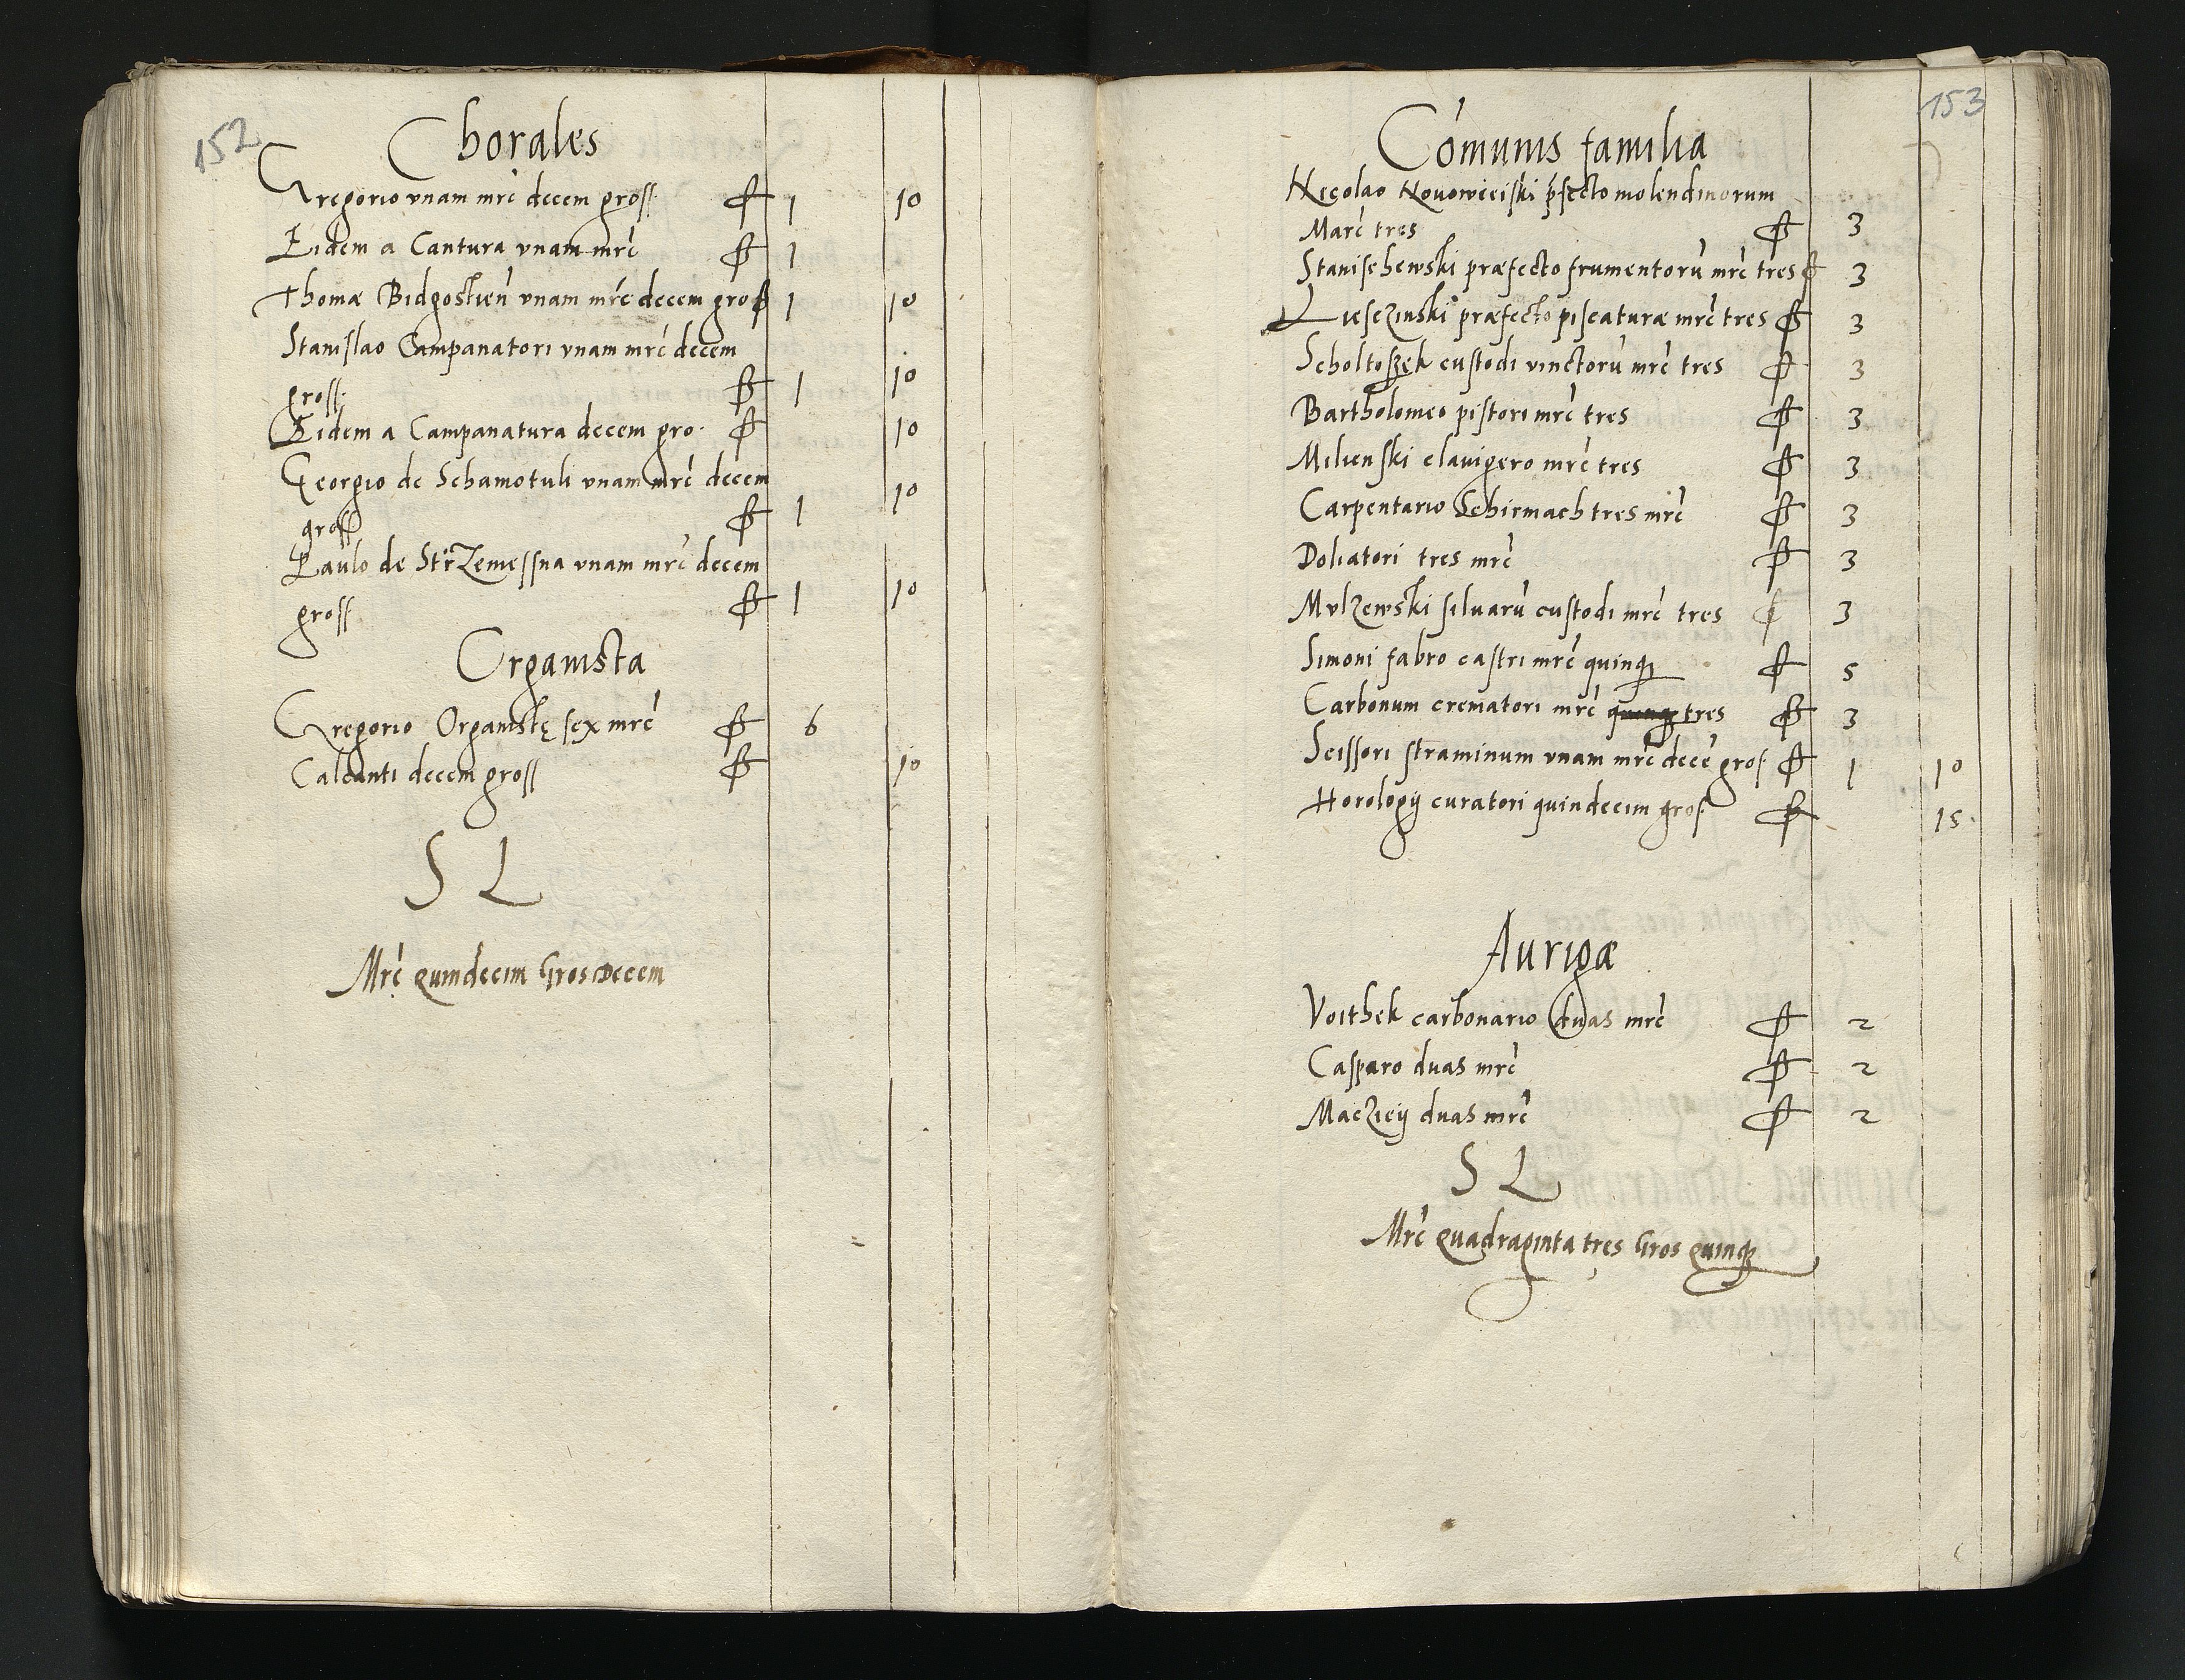 152
Chorales
Gregorio vnam mrć decem gross ƒt 1 10
Eidem a Cantura vnam mrć ƒt 1
Thomæ Bidgostień vnam mrć decem gross 1 10
Stanislao Campanatori vnam mrć decem
gross ƒt 1 10
Eidem a Campanatura decem gro. ƒt 10
Georgio de Schamotuli vnam mrć decem
gross ƒt 1 10
Paulo de Strzemessna vnam mrć decem
gross ƒt 1 10
Organista
Gregorio Organistę sex mrć ƒt 6
Calcanti decem gross ƒt 10
S L
Mrć quindecim Gros decem
153
Cōmunis familia
Nicolao Nouowieiski p̄fecto molendinorum
Marć tres ƒt 3
Stanischewski præfecto frumentorū mrć tres ƒt 3
Liesczinski præfecto piscaturæ mrć tres ƒt 3
Scholtoszek custodi vinctorū mrć tres ƒt 3
Bartholomeo pistori mrć tres ƒt 3
Milienski clauigero mrć tres ƒt 3
Carpentario Schirmach tres mrć ƒt 3
Doliatori tres mrć ƒt 3
Mvlzewski siluarū custodi mrć tres ƒt 3
Simoni fabro castri mrć quinqꝫ ƒt 5
Carbonum crematori mrć quinqꝫ tres ƒt 3
Scissori straminum vnam mrć decē gros ƒt 1 10
Horologij curatori quindecim gros ƒt 15
Aurigæ
Voithek carbonario duas mrć ƒt 2
Casparo duas mrć ƒt 2
Macziej duas mrć ƒt 2
S L
Mrć quadraginta tres Gros quinqꝫ